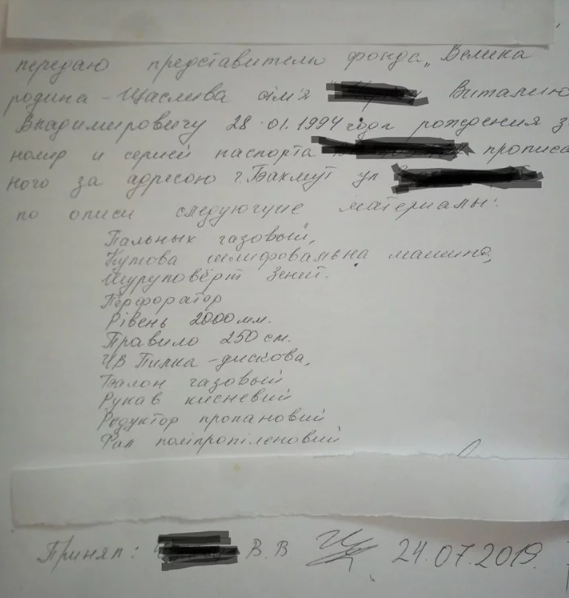 передаю представителю фонда „Велика
родина - Щаслива сім'я Виталию
Владимировичу 28.01.1994 года рождения з
номир и серией паспорта прописа
ного за адресою г Бахмут ул
по описи следующие материалы:
Пальнык газовый,
Кутова шлифовальна машина,
Шуруповёрт Зенит.
Перфоратор
Рівень 2000 мм.
Правило 250 см.
Пилка - дискова,
Балон газовый
Рукав кисневий
Редуктор пропановий
Фал поліпропіленовий
Принял: В.В 24.07.2019